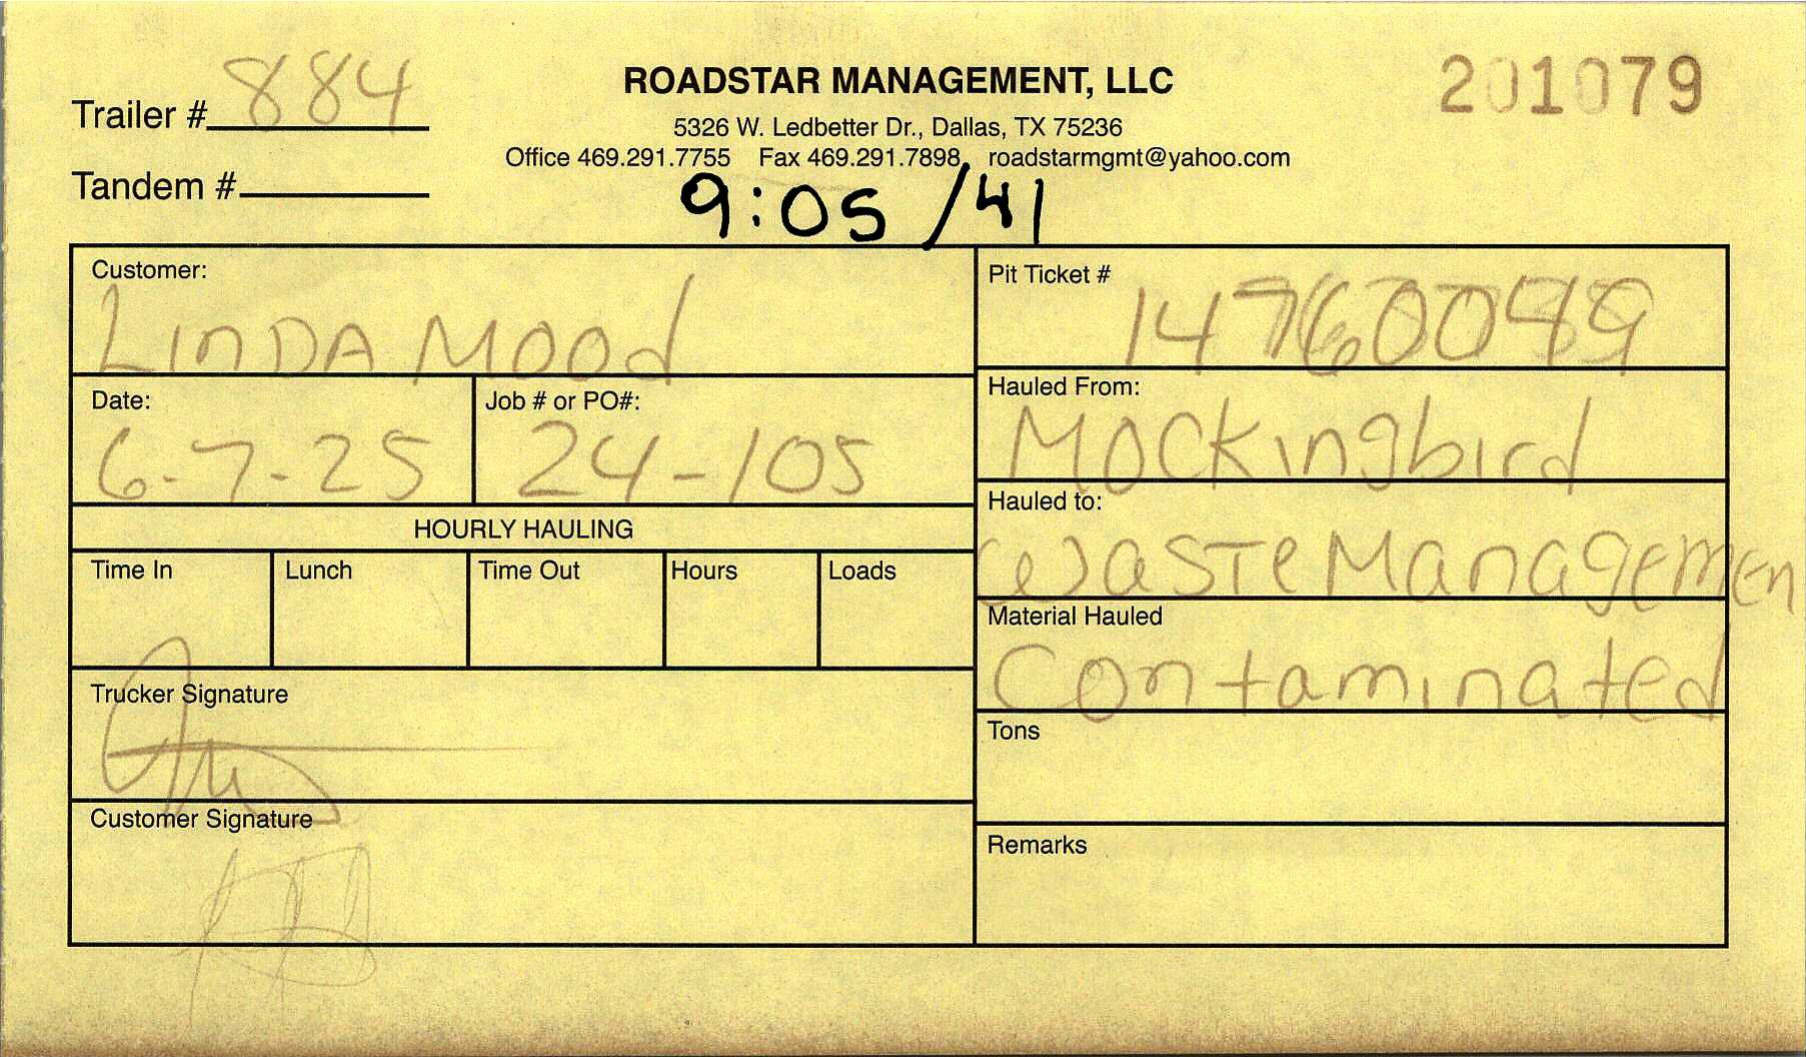 Trailer # 884
ROADSTAR MANAGEMENT, LLC
201079
5326 W. Ledbetter Dr., Dallas, TX 75236
Office 469.291.7755 Fax 469.291.7898 roadstarmgmt@yahoo.com
Tandem #
9:05 /41
Customer:
LINDAMOOd
Pit Ticket #
Date:
6-7-25
Job # or PO#:
24-105
Hauled From:
Mockingbird
Hauled to:
Waste Managemen
HOURLY HAULING
Time In Lunch Time Out Hours Loads
Material Hauled
Contaminated
Trucker Signature
Tons
Customer Signature
Remarks